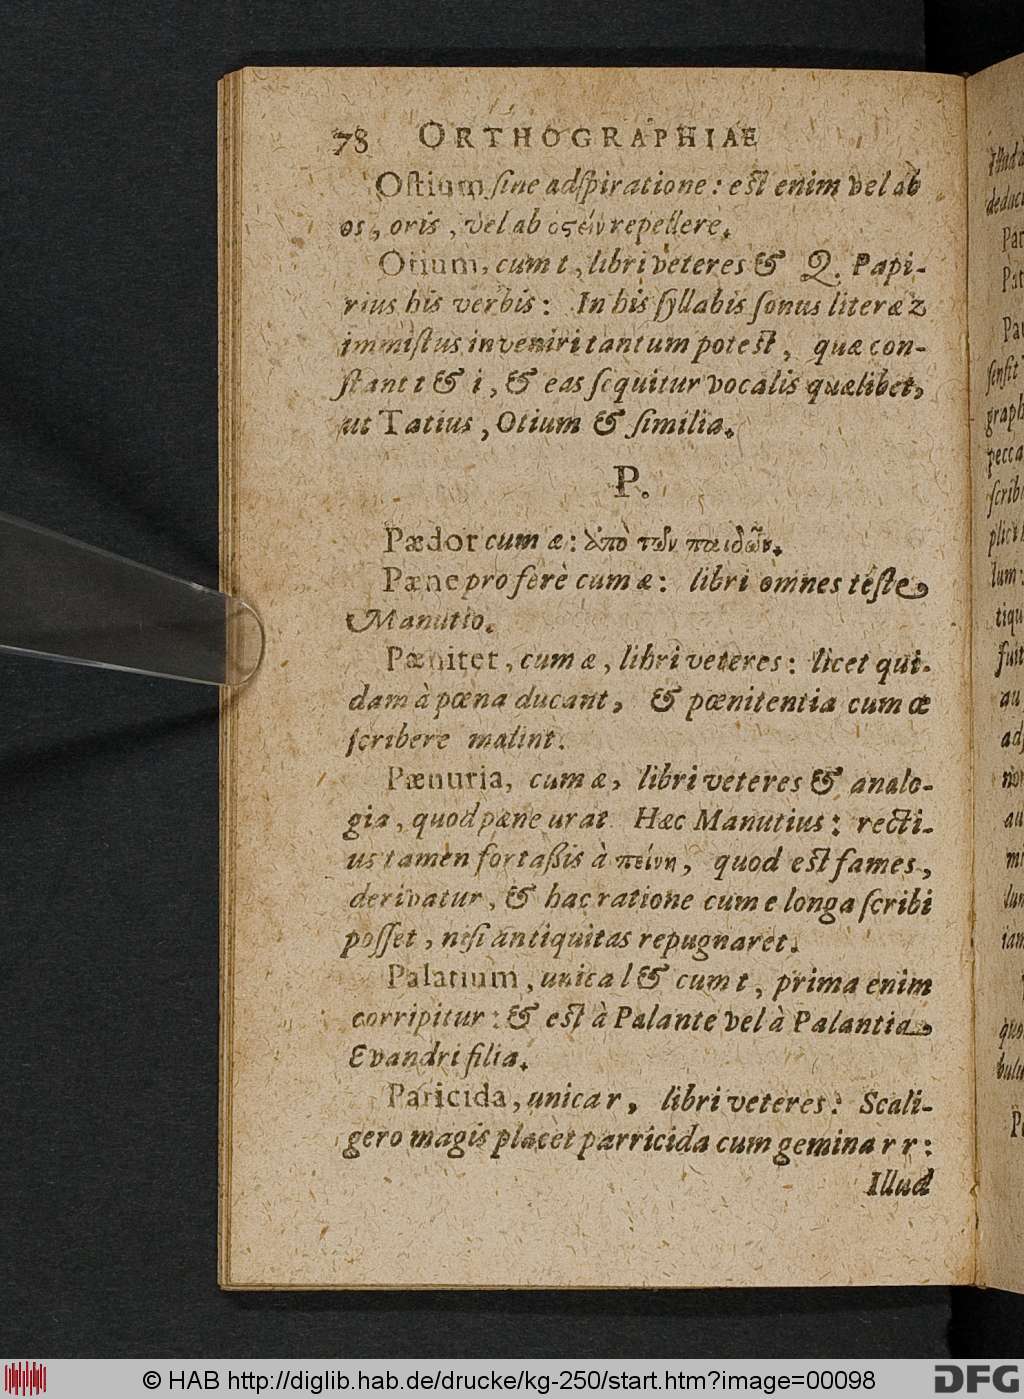 78 ORTHOGRAPHIAE
Oſtium ſine adſpiratione: eſt enim vel ab
os, oris, vel ab ὀϛεῖν repellere.
Otium, cum t, libri veteres & Q. Papi-
rius his verbis: In his ſyllabis ſonus literæ z
immiſtus inveniri tantum poteſt, quæ con-
ſtant t & i, & eas ſequitur vocalis quælibet,
ut Tatius, Otium & ſimilia.
P.
Pædor cum æ: ἀπὸ τῶν παιδῶν.
Pæne pro ferè cum æ: libri omnes teſte
Manutio.
Pænitet, cum æ, libri veteres: licet qui-
dam à pœna ducant, & pœnitentia cum œ
ſcribere malint.
Pænuria, cum æ, libri veteres & analo-
gia, quod pæne urat Hæc Manutius: recti-
us tamen fortaßis à πείνη, quod eſt fames,
derivatur, & hac ratione cum e longa ſcribi
poſſet, niſi antiquitas repugnaret.
Palatium, unica l & cum t, prima enim
corripitur: & eſt à Palante vel à Palantia,
Evandri filia.
Paricida, unica r, libri veteres: Scali-
gero magis placet parricida cum gemina r r:
Illud
ſenſit
graph
pecca
ſcrib
tiqu
fuit
© HAB http://diglib.hab.de/drucke/kg-250/start.htm?image=00098
DFG